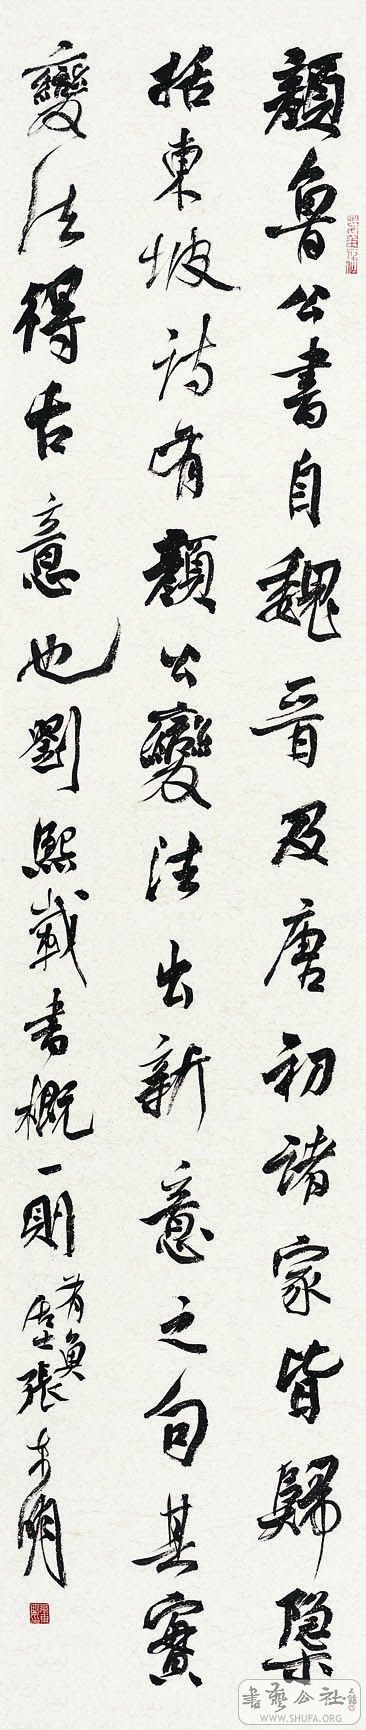 顏魯公書自魏晉及唐初諸家皆歸隱栝
東坡詩有顏公變法出新意之句其實
變法得古意也劉熙載書概一則
有魚
張東明
書藝公社
WWW.SHUFA.ORG